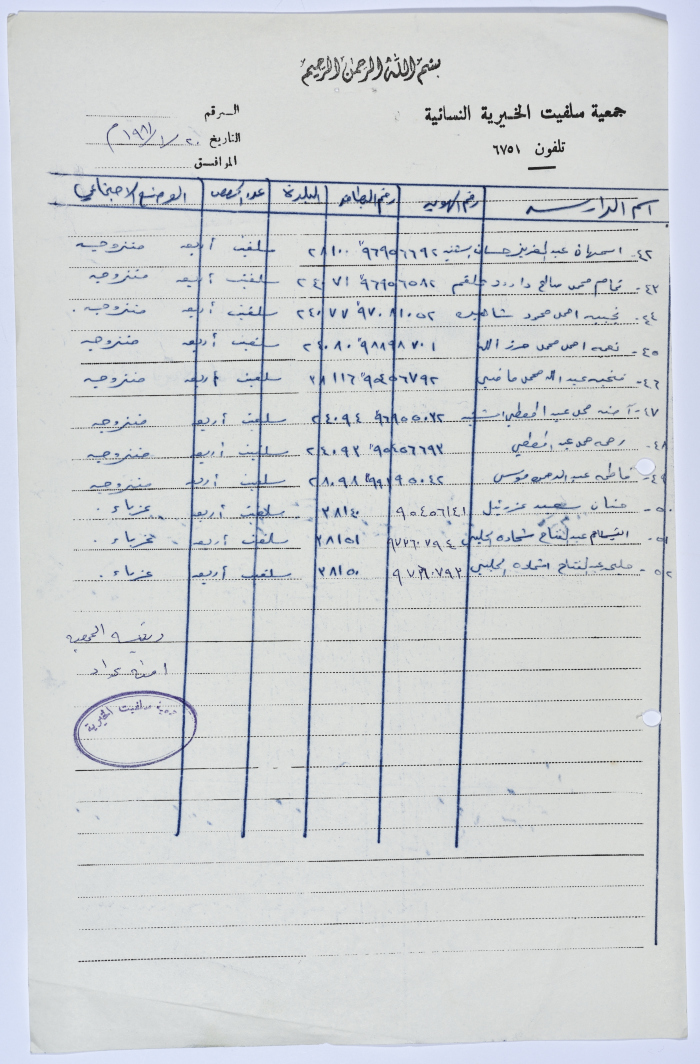 بسم الله الرحمن الرحيم
جمعية سلفيت الخيرية النسائية
تلفون ٦٧٥١
الرقم
التاريخ ٢٠/١/١٩٨١م
الموافق
اسم الدارسه رقم الهويه رقم البطاقه البلده عدد الحصص الوضع الاجتماعي
٤٢- اسمهان عبد العزيز حسان اشتيه ٩٦٩٥٦٦٩٢ ٢٨١٠٠ سلفيت أربعه متزوجيه
٤٣- تمام محمد صالح داود علقم ٩٦٩٥٦٥٨٢ ٢٤٠٧١ سلفيت أربعه متزوجيه
٤٤- نجيبه احمد محمود شاهين ٩٧٠٨١٠٥٢ ٢٤٠٧٧ سلفيت أربعه متزوجيه
٤٥- نعمه احمد محمد حرز الله ٩٨٨٩٨٧٠١ ٢٤٠٨٠ سلفيت أربعه متزوجيه
٤٦- فتحيه عبد الله محمد ماضي ٩٥٤٥٦٧٩٢ ٢٨١١٦ سلفيت أربعه متزوجيه
٤٧- آمنه محمد عبد المعطي اشتيه ٢٤٠٩٤ سلفيت أربعه متزوجيه
٤٨- عبد المعطي ٩٥٤٥٦٦٩٢ ٢٤٠٩٢ سلفيت أربعه متزوجيه
٤٩- فاطمه عبد الرحمن موسى ٢٨٠٩٨ سلفيت أربعه متزوجيه
٥٠- حنان سعيد عزريل ٩٥٤٥٦١٤١ ٢٨١٤٠ سلفيت أربعه عزباء
٥١- ابتسام عبد الفتاح شحاده الحلبي ٩٧٢٦٠٧٩٤ ٢٨١٥١ سلفيت أربعه عزباء
٥٢- عبد الفتاح شحاده الحلبي ٩٧٢٦٠٧٩٢ ٢٨١٥٠ سلفيت أربعه عزباء
رئيسة الجمعيه
جمعية سلفيت الخيرية